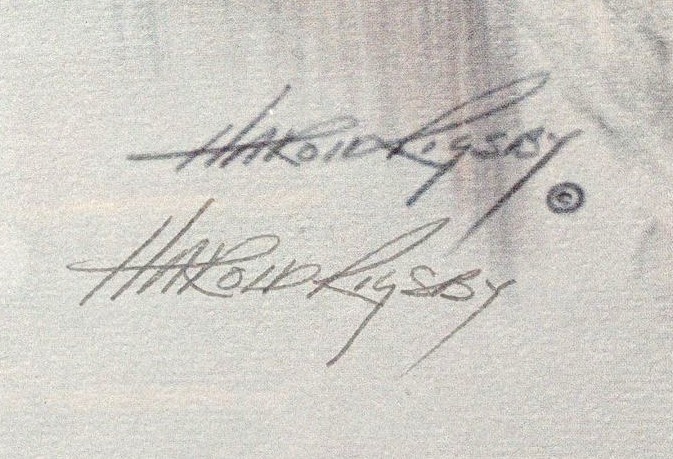 HAROLD RIGSBY ©
HAROLD RIGSBY